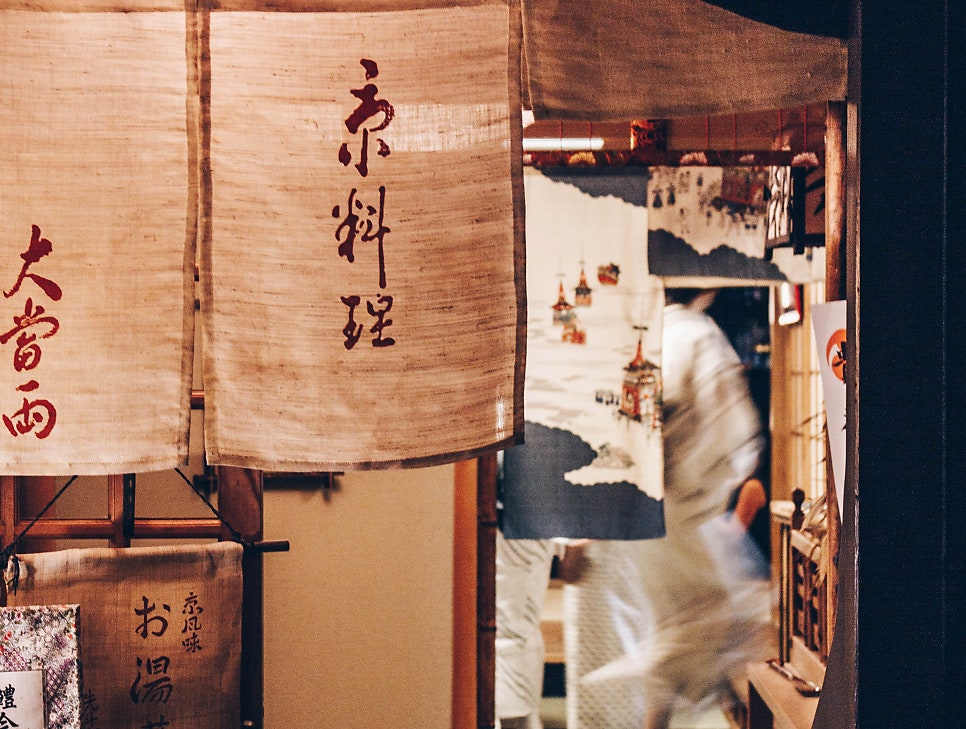 京料理
大當両
京風味
お湯
鱧